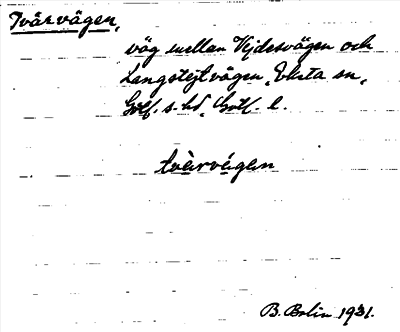 Tvärvägen,
väg mellan Vejdesvägen och
Langstejlvägen, Eksta sn,
Gotl. s. hd, Gotl. l.
tvèrvégen
B. Bolin 1931.